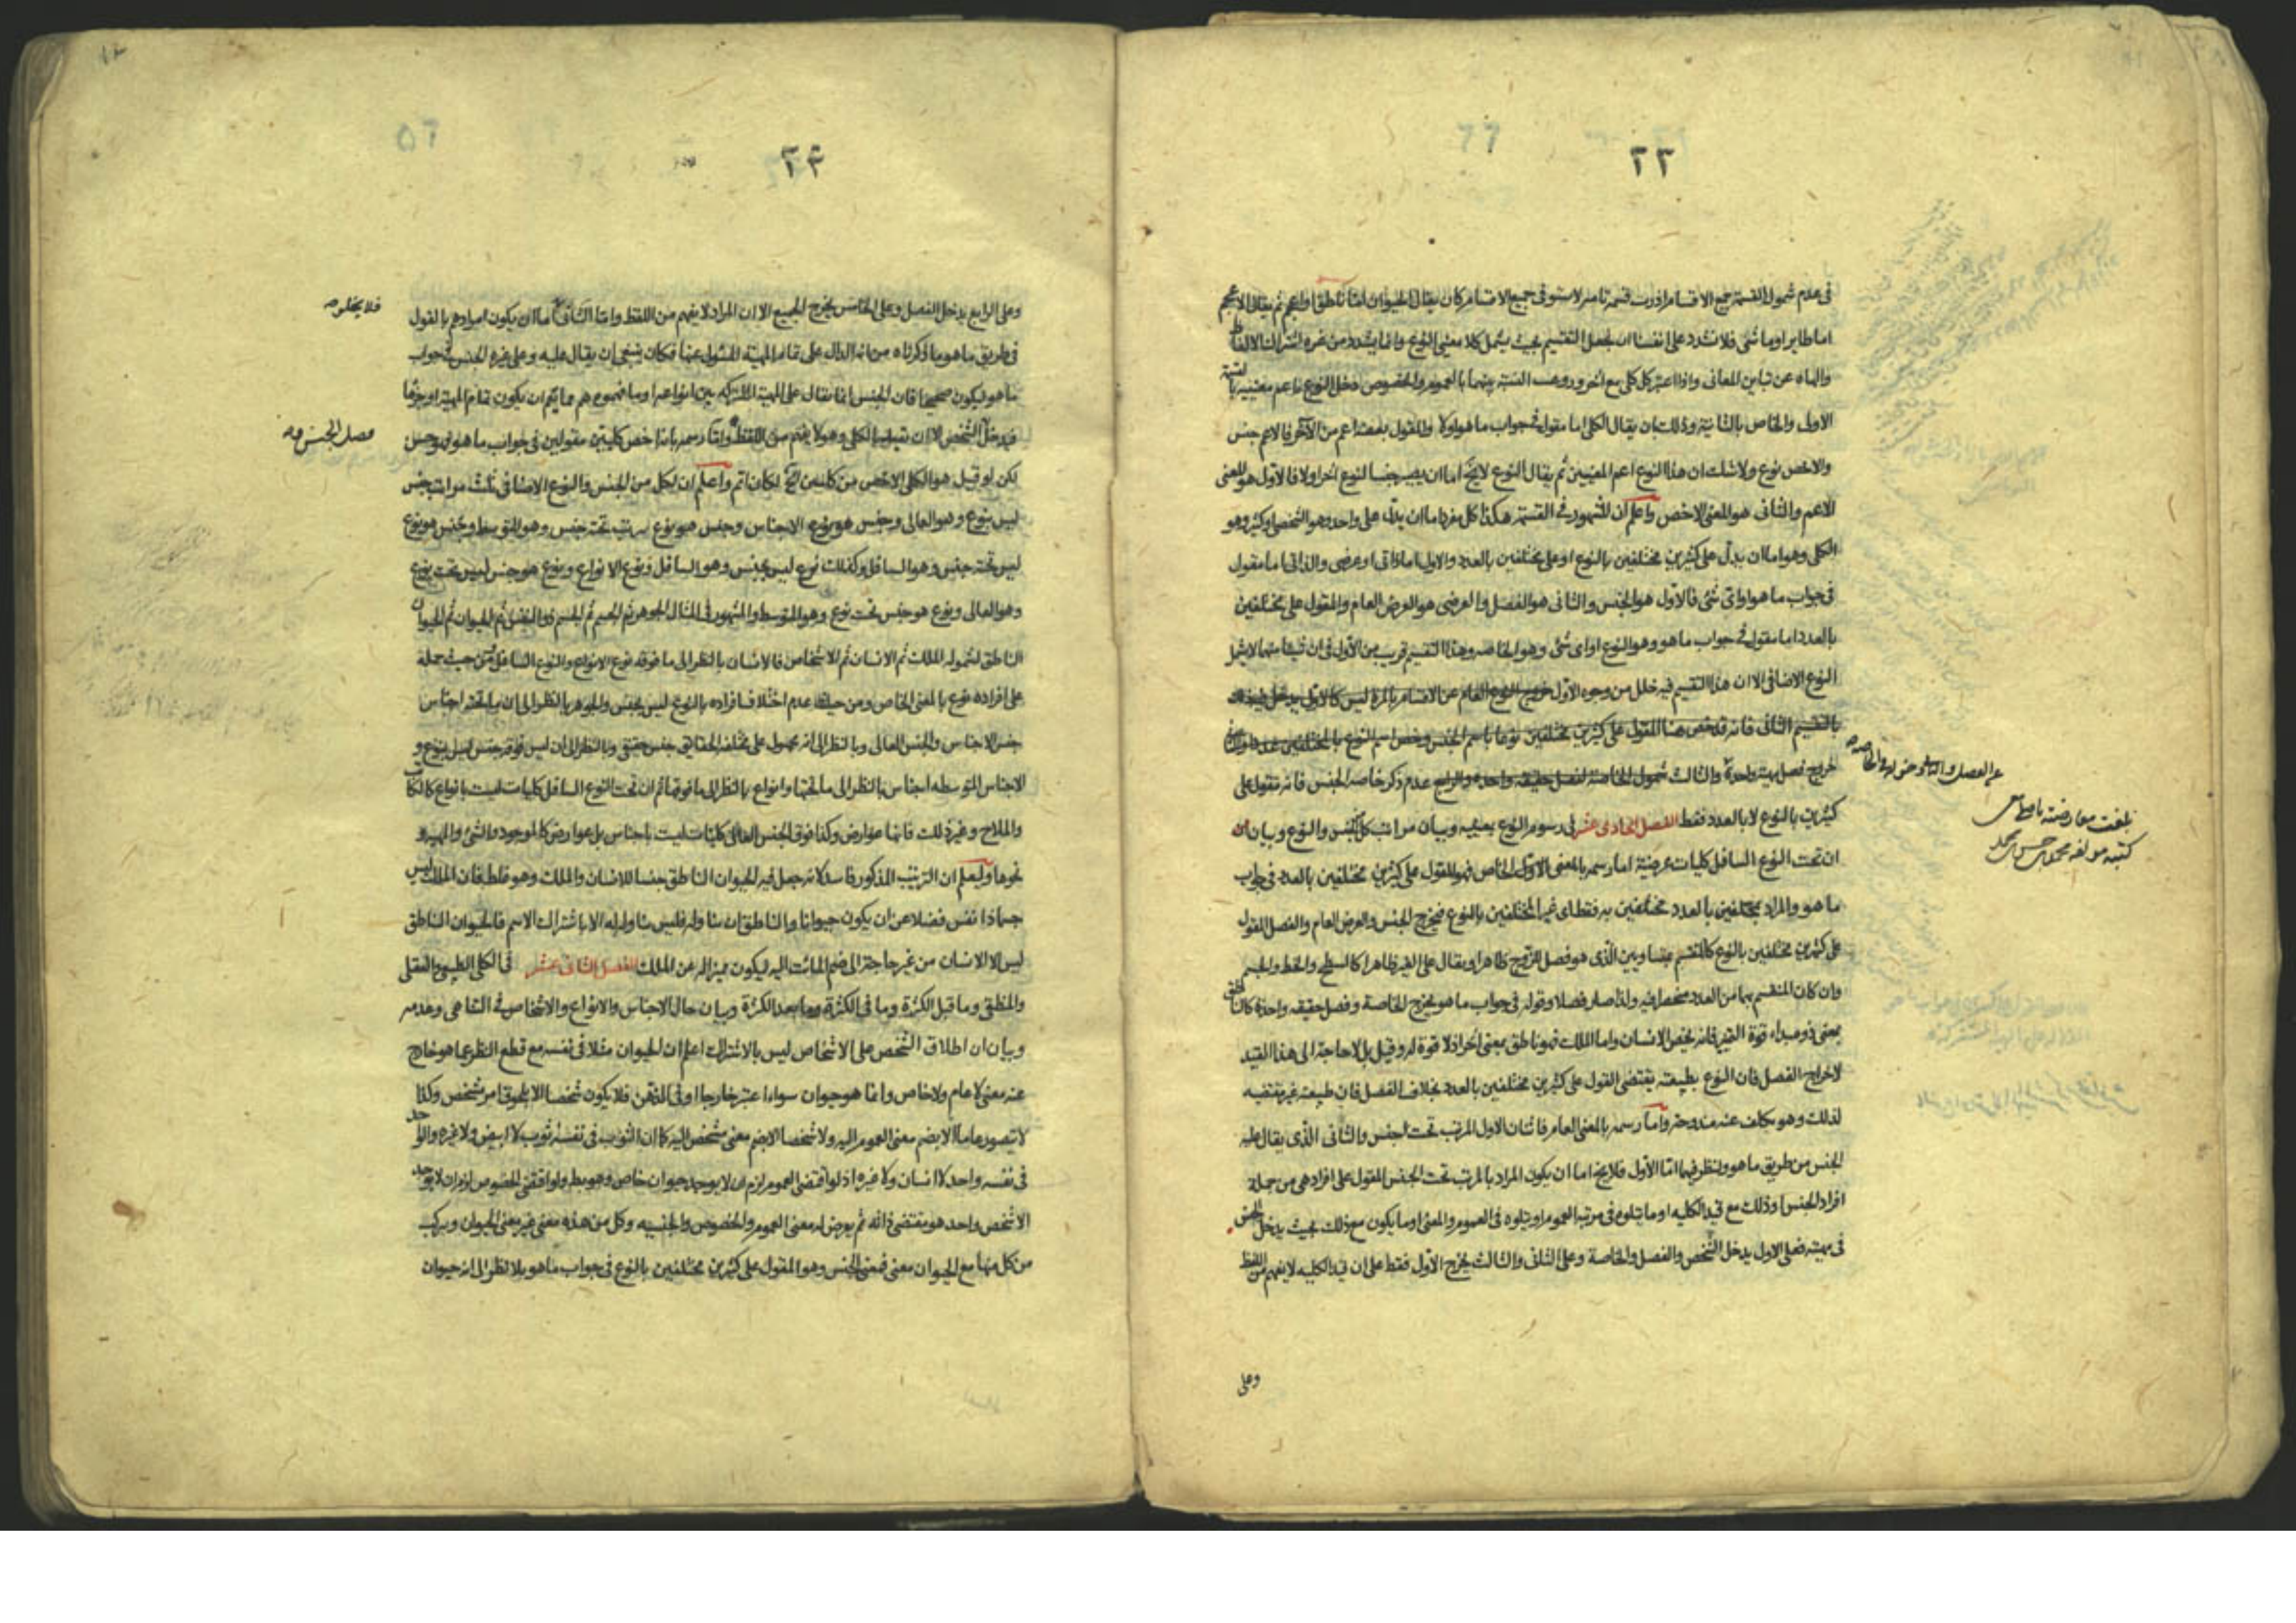 ٢٣
فى عدم شمول القسمة جميع الاقسام
اما طاير او ماشى فلا نشدد على انفسنا ان نجعل التقسيم بحيث يشمل كلا معنيى النوع وانما يشدد من غره اشتراك الالفاظ
والهاه عن تباين المعانى واذا اعتبر كل كلى مع اخر وروعيت النسبة بينهما بالعموم والخصوص دخل النوع باعم معنييه
الاولى والخاص بالثانية وذلك بان يقال الكلى اما مقول فى جواب ما هو اولا والمقول بعضه اعم من الآخر فالاعم جنس
والاخص نوع ولا شك ان هذا النوع اعم المعنيين ثم يقال النوع لا يخ اما ان يصير جنسا لنوع اخر اولا فالاول هو المعنى
الاعم والثانى هو المعنى الاخص واعلم ان المشهور فى القسمة هكذا كل مفرد اما ان يدل على واحد وهو الشخص او كثير وهو
الكلى وهو اما ان يدل على كثيرين مختلفين بالنوع او على مختلفين بالعدد والاول اما ذاتى او عرضى والذاتى اما مقول
فى جواب ما هو او اى شئ فالاول هو الجنس والثانى هو الفصل والعرضى هو العرض العام والمقول على مختلفين
بالعدد اما مقول فى جواب ما هو وهو النوع او اى شئ وهو الخاصه وهذا التقسيم قريب من الاول فى ان شيئا منهما لا يشمل
النوع الاضافى الا ان هذا التقسيم فيه خلل من وجوه الاول خروج النوع العام عن الاقسام بالمرة ليس كالاول
بالتقسيم الثانى فانه قد خص هنا المقول على كثيرين مختلفين نوعا باسم الجنس وخص اسم النوع بالمختلفين عددا
خروج فصل واحدة والثالث شمول الخاصة لفصل حقيقه واحده والرابع عدم ذكر خاصه الجنس فانه تقول على
كثيرين بالنوع لا بالعدد فقط الفصل الحادى عشر فى رسوم النوع بمعنييه وبيان مراتب كل من الجنس والنوع وبيان
ان تحت النوع السافل كليات عرضية اما رسمه بالمعنى الاول الخاص فهو المقول على كثيرين مختلفين بالعدد فى جواب
ما هو والمراد بمختلفين بالعدد مختلفين به فقط اى غير المختلفين بالنوع فيخرج الجنس والعرض العام والفصل المقول
على كثيرين مختلفين بالنوع كالمنقسم بمتساويين الذى هو فصل الزوج ظاهرا ويقال على الغير ظاهرا كالسطح والخط والجسم
وان كان المنقسم بهما من العدد مختصا فيه ولذا صار فصلا وقوله فى جواب ما هو يخرج الخاصة وفصل حقيقه واحدة كالناطق
بمعنى ذو مبداء قوة التميز فانه يخص الانسان واما الملك فهو ناطق بمعنى اخر اذ لا قوة له وقيل بل لا حاجة الى هذا القيد
لاخراج الفصل فان النوع بطبيعته يقتضى القول على كثيرين مختلفين بالعدد بخلاف الفصل فان طبيعته غير مقتضيه
لذلك وهو تكلف عنه مندوحة واما رسمه بالمعنى العام فاثنان الاول المرتب تحت الجنس والثانى الذى يقال عليه
الجنس من طريق ما هو وننظر فيهما اما الاول فلا يخ اما ان يكون المراد بالمرتب تحت الجنس المقول على افراد هى من جملة
افراد الجنس او ذلك مع قيد الكليه او ما يتلوه فى مرتبة العموم او يتلوه فى العموم والمعنى او ما يكون مع ذلك بحيث يدخل الجنس
فى مهيته فعلى الاول يدخل الشخص والفصل والخاصة وعلى الثانى والثالث يخرج الاول فقط على ان قيد الكليه لا يفهم من اللفظ
وعلى
بلغت معارضته
كتبه مولفه محمد بن حسن بن محمد
٢٤
وعلى الرابع يدخل الفصل وعلى الخامس يخرج الجميع الا ان المراد لا يفهم من اللفظ واما الثانى اما ان يكون مرادهم بالقول
فى طريق ما هو ما ذكرناه من انه الدال على تمام المهية المسئول عنها فكان ينبغى ان يقال عليه وعلى غيره الجنس فى جواب
ما هو ليكون صحيحا فان الجنس انما يقال على المهية المشتركه بين انواعه او ما هو مفهومهم مما يعم ان يكون تمام المهية او جزئها
فيدخل الشخص الا ان تقيد بالكلى وهو لا يفهم من اللفظ واما رسمه بانه اخص كليين مقولين فى جواب ما هو فهو حسن
لكن لو قيل هو الكلى الاخص من كليين الخ لكان اتم واعلم ان لكل من الجنس والنوع الاضافى ثلث مراتب جنس
ليس بنوع وهو العالى وجنس هو نوع الاجناس وجنس هو نوع يرتب تحت جنس وهو المتوسط وجنس هو نوع
ليس تحته جنس وهو السافل وكذلك نوع ليس بجنس وهو السافل ونوع الانواع ونوع هو جنس ليس تحت نوع
وهو العالى ونوع هو جنس تحت نوع وهو المتوسط والمشهور فى المثال الجوهر ثم الجسم ثم الجسم ذو النفس ثم الحيوان ثم الحيوان
الناطق لشموله الملك ثم الانسان ثم الاشخاص فالانسان بالنظر الى ما فوقه نوع الانواع والنوع السافل ومن حيث حمله
على افراده نوع بالمعنى الخاص ومن حيث عدم اختلاف افراده بالنوع ليس بجنس والجوهر بالنظر الى ان ما تحته اجناس
جنس الاجناس والجنس العالى وبالنظر الى انه محمول على مختلفه الحقائق جنس حقيقى وبالنظر الى ان ليس فوقه جنس ليس بنوع و
الاجناس المتوسطه اجناس بالنظر الى ما تحتها وانواع بالنظر الى ما فوقها ثم ان تحت النوع السافل كليات ليست بانواع كالكاتب
والملاح وغير ذلك فانها عوارض وكذا فوق الجنس العالى كليات ليست باجناس بل عوارض كالموجود والشئ والمهية و
نحوها وليعلم ان الترتيب المذكور فاسد لانه جعل فيه الحيوان الناطق جنسا للانسان والملك وهو غلط فان الملك ليس
جسما ذا نفس فضلا عن ان يكون حيوانا والناطق ان تناوله فليس تناوله له الا باشتراك الاسم فالحيوان الناطق
ليس الا الانسان من غير حاجة الى ضم المائت اليه ليكون مميزا له عن الملك الفصل الثانى عشر فى الكلى الطبيعى والعقلى
والمنطقى وما قبل الكثرة وما فى الكثرة وما بعد الكثرة وبيان حال الاجناس والانواع والاشخاص فى التناهى وعدمه
وبيان ان اطلاق الشخص على الاشخاص ليس بالاشتراك اعلم ان الحيوان مثلا فى نفسه مع قطع النظر عما هو خارج
عنه معنى لا عام ولا خاص وانما هو حيوان سواء اعتبر خارجا او فى الذهن فلا يكون شخصا الا بلحوق امر مشخص وكذا
لا يتصور عاما الا بضم معنى العموم اليه ولا شخصا الا بضم معنى مشخص اليه كما ان الثوب فى نفسه ثوب لا ابيض ولا غيره والواحد
فى نفسه واحد لا انسان ولا غيره اذ لو اقتضى العموم لزم ان لا يوجد حيوان خاص وهو بط ولو اقتضى الخصوص لزم ان لا يوجد
الا شخص واحد هو مقتضى ذاته ثم يعرض له معنى العموم والخصوص والجنسيه وكل من هذه معنى غير معنى الحيوان ويركب
من كل منها مع الحيوان معنى فمعنى الجنس وهو المقول على كثيرين مختلفين بالنوع فى جواب ما هو بلا نظر الى انه حيوان
فلا يخلو
فصل الجنس